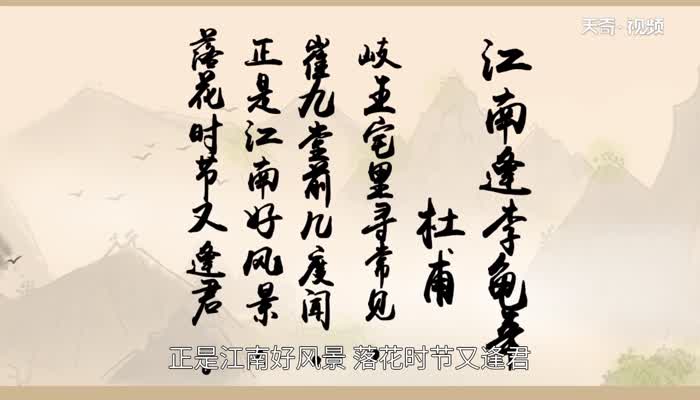 天奇·视频
江南逢李龟年
杜甫
岐王宅里寻常见，
崔九堂前几度闻。
正是江南好风景
落花时节又逢君。
正是江南好风景 落花时节又逢君